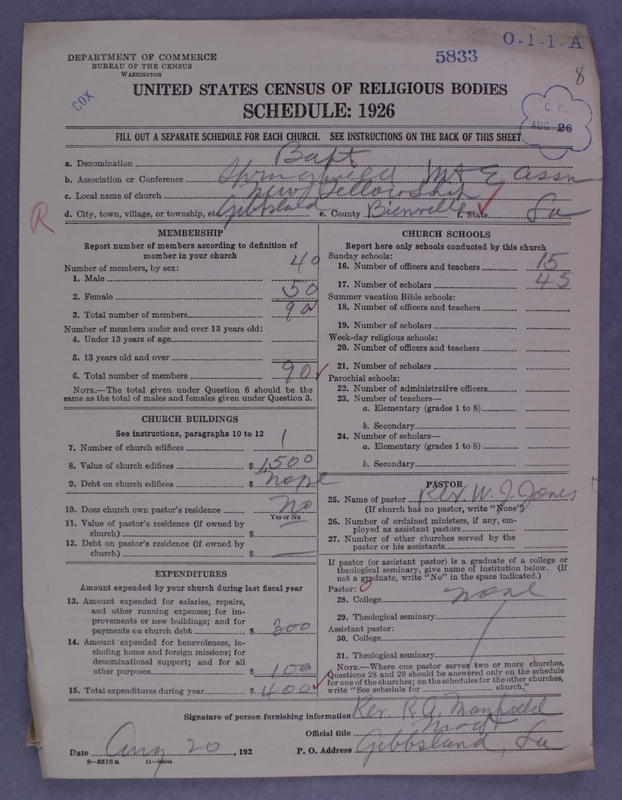 O-1-1-A
5833
8
DEPARTMENT OF COMMERCE
BUREAU OF THE CENSUS
WASHINGTON
COX
UNITED STATES CENSUS OF RELIGIOUS BODIES
SCHEDULE: 1926
AUG 26
FILL OUT A SEPARATE SCHEDULE FOR EACH CHURCH. SEE INSTRUCTIONS ON THE BACK OF THIS SHEET
a. Denomination Bapt
b. Association or Conference Springfield Mt E Assn
c. Local name of church New Fellowship
d. City, town, village, or township, etc. Gibbsland e. County Bienville f. State La
R
MEMBERSHIP
Report number of members according to definition of
member in your church
Number of members, by sex:
1. Male 40
2. Female 50
3. Total number of members 90
Number of members under and over 13 years old:
4. Under 13 years of age
5. 13 years old and over
6. Total number of members 90
NOTE.—The total given under Question 6 should be the
same as the total of males and females given under Question 3.
CHURCH BUILDINGS
See instructions, paragraphs 10 to 12
7. Number of church edifices 1
8. Value of church edifices $ 1,500
9. Debt on church edifices $ none
10. Does church own pastor's residence No
Yes or No
11. Value of pastor's residence (if owned by
church) $
12. Debt on pastor's residence (if owned by
church) $
EXPENDITURES
Amount expended by your church during last fiscal year
13. Amount expended for salaries, repairs,
and other running expenses; for im-
provements or new buildings; and for
payments on church debt $ 300
14. Amount expended for benevolences, in-
cluding home and foreign missions; for
denominational support; and for all
other purposes $ 100
15. Total expenditures during year $ 400
CHURCH SCHOOLS
Report here only schools conducted by this church
Sunday schools:
16. Number of officers and teachers 15
17. Number of scholars 45
Summer vacation Bible schools:
18. Number of officers and teachers
19. Number of scholars
Week-day religious schools:
20. Number of officers and teachers
21. Number of scholars
Parochial schools:
22. Number of administrative officers
23. Number of teachers—
a. Elementary (grades 1 to 8)
b. Secondary
24. Number of scholars—
a. Elementary (grades 1 to 8)
b. Secondary
PASTOR
25. Name of pastor Rev. W. J. Jones
(If church has no pastor, write "None")
26. Number of ordained ministers, if any, em-
ployed as assistant pastors
27. Number of other churches served by the
pastor or his assistants
If pastor (or assistant pastor) is a graduate of a college or
theological seminary, give name of institution below. (If
not a graduate, write "No" in the space indicated.)
Pastor: O
28. College none
29. Theological seminary
Assistant pastor:
30. College
31. Theological seminary
NOTE.—Where one pastor serves two or more churches,
Questions 28 and 29 should be answered only on the schedule
for one of the churches; on the schedules for the other churches,
write "See schedule for church."
Signature of person furnishing information Rev. R. A.
Official title
Date Aug 20, 192 P. O. Address Gibbsland, La
8—5518a